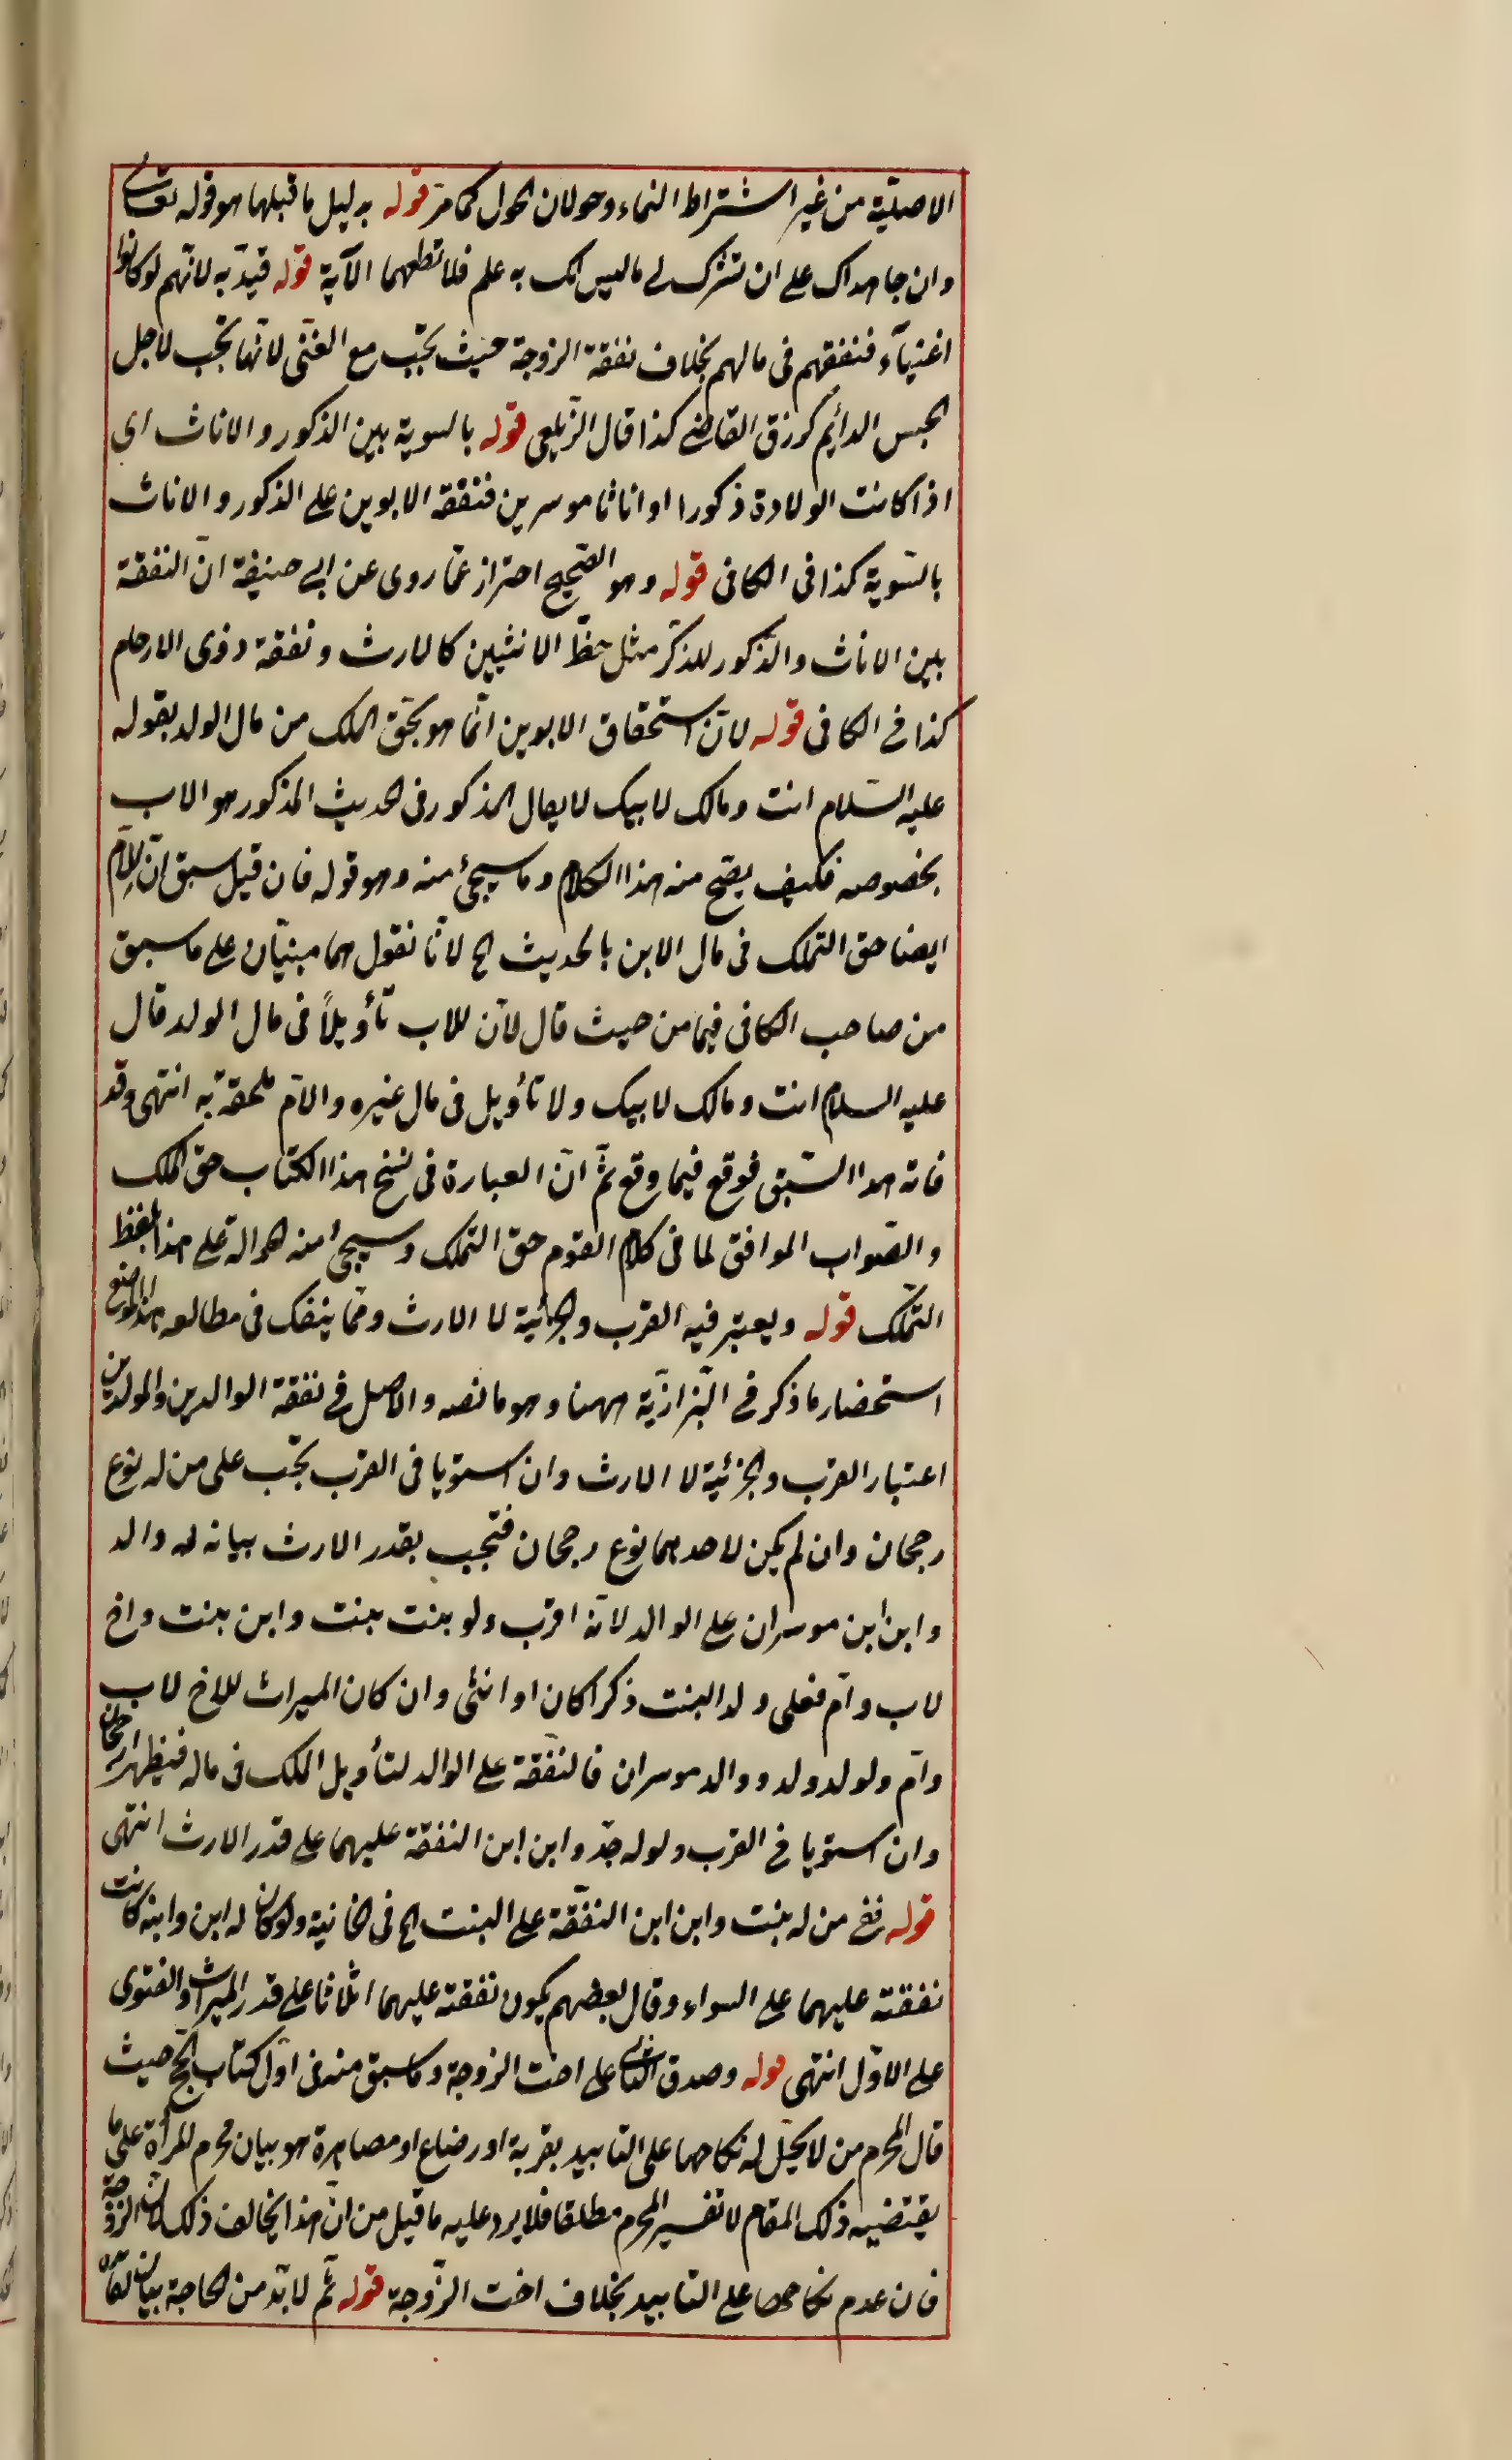 الاصلية من غير اشتراط النماء وحولان الحول كما مرّ قوله بدليل ما قبلها هو قوله تعالى
وان جاهداك على ان تشرك بى ما ليس لك به علم فلا تطعهما الآية قوله قيد به لانهم لو كانوا
اغنيآء فنفقتهم فى مالهم بخلاف نفقة الزوجة حيث تجب مع الغنى لانها تجب لاجل
الحبس الدائم كرزق القاضى كذا قال الزيلعى قوله بالسوية بين الذكور والاناث اى
اذا كانت الولادة ذكورا او اناثا موسرين فنفقة الابوين على الذكور والاناث
بالسوية كذا فى الكافى قوله وهو الصحيح احتراز عما روى عن ابى حنيفة ان النفقة
بين الاناث والذكور للذكر مثل حظ الانثيين كالارث ونفقة ذوى الارحام
كذا فى الكافى قوله لان استحقاق الابوين انما هو بحق الملك من مال الولد بقوله
عليه السلام انت ومالك لابيك لا يقال المذكور فى الحديث المذكور هو الاب
بخصوصه فكيف يصح منه هذا الكلام وما سيجئ منه وهو قوله فان قيل سبق ان للام
ايضا حق التملك فى مال الابن بالحديث الخ لانا نقول هما مبنيان على ما سبق
من صاحب الكافى فيما من حيث قال لان للاب تأويلاً فى مال الولد قال
عليه السلام انت ومالك لابيك ولا تأويل فى مال غيره والام ملحقة به انتهى وقد
فاته هذا السبق فوقع فيما وقع ثم ان العبارة فى نسخ هذا الكتاب حق الملك
والصواب الموافق لما فى كلام القوم حق التملك وسيجئ منه الحوالة على هذا بلفظ
التملك قوله ويعتبر فيه القرب والجزئية لا الارث ومما ينفعك فى مطالعه هذا الموضع
استحضار ما ذكر فى البزازية ههنا وهو ما نصه والاصل فى نفقة الوالدين والمولودين
اعتبار القرب والجزئية لا الارث وان استويا فى القرب تجب على من له نوع
رجحان وان لم يكن لاحدهما نوع رجحان فتجب بقدر الارث بيانه له والد
وابن ابن موسران على الوالد لانه اقرب ولو بنت بنت وابن بنت واخ
لاب وام فعلى ولد البنت ذكرا كان او انثى وان كان الميراث للاخ لاب
وام ولو لد ولد ووالد موسران فالنفقة على الوالد لتأويل الملك فى ماله فيظهر الرجحان
وان استويا فى القرب ولو له جد وابن ابن النفقة عليهما على قدر الارث انتهى
قوله ففى من له بنت وابن ابن النفقة على البنت الخ فى الخانية ولو كان له ابن وابنة كانت
نفقته عليهما على السواء وقال بعضهم يكون نفقته عليهما اثلاثا على قدر الميراث والفتوى
على الاول انتهى قوله وصدق الثانى على اخت الزوجة وما سبق منه فى اول كتاب الحج حيث
قال المحرم من لا يحل له نكاحها على التابيد بقربة او رضاع او مصاهرة هو بيان محرم للمرأة على ما
يقتضيه ذلك المقام لا تفسير المحرم مطلقا فلا يرد عليه ما قيل من ان هذا يخالف ذلك الزوجة
فان عدم نكاحها على التابيد بخلاف اخت الزوجة قوله ثم لا بد من الحاجة بيان